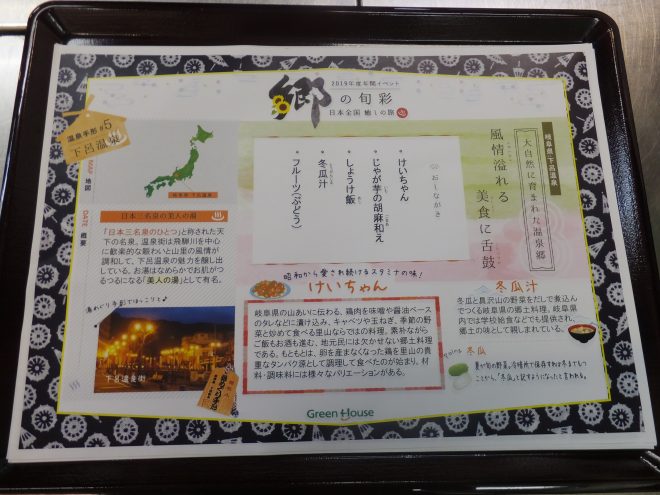 2019年度年間イベント
郷の旬彩
日本全国 癒しの旅
温泉手形 #5
下呂温泉
MAP 地図
岐阜県 下呂温泉
DATE 概要
日本三名泉の美人の湯
「日本三名泉のひとつ」と称された天
下の名泉。温泉街は飛騨川を中心
に歓楽的な賑わいと山里の風情が
調和して、下呂温泉の魅力を醸し出
している。お湯はなめらかでお肌がつ
るつるになる「美人の湯」として有名。
湯めぐり手形でほっこりと♪
下呂温泉街
岐阜県 下呂温泉
大自然に育まれた温泉郷
風情溢れる
美食に舌鼓
おしながき
・けいちゃん
・じゃが芋の胡麻和え
・しょうけ飯
・冬瓜汁
・フルーツ(ぶどう)
昭和から愛され続けるスタミナの味!
けいちゃん
岐阜県の山あいに伝わる、鶏肉を味噌や醤油ベース
のタレなどに漬け込み、キャベツや玉ねぎ、季節の野
菜と炒めて食べる里山ならではの料理。素朴ながら
ご飯もお酒も進む、地元民には欠かせない郷土料理
である。もともとは、卵を産まなくなった鶏を里山の貴
重なタンパク源として調理して食べたのが始まり。材
料・調味料には様々なバリエーションがある。
冬瓜汁
冬瓜と具沢山の野菜をだしで煮込ん
でつくる岐阜県の郷土料理。岐阜県
内では学校給食などでも提供され、
郷土の味として親しまれている。
冬瓜
夏が旬の野菜。冷暗所で保存すれば冬までもつ
ことから、「冬瓜」と記すようになったと言われる。
Green House